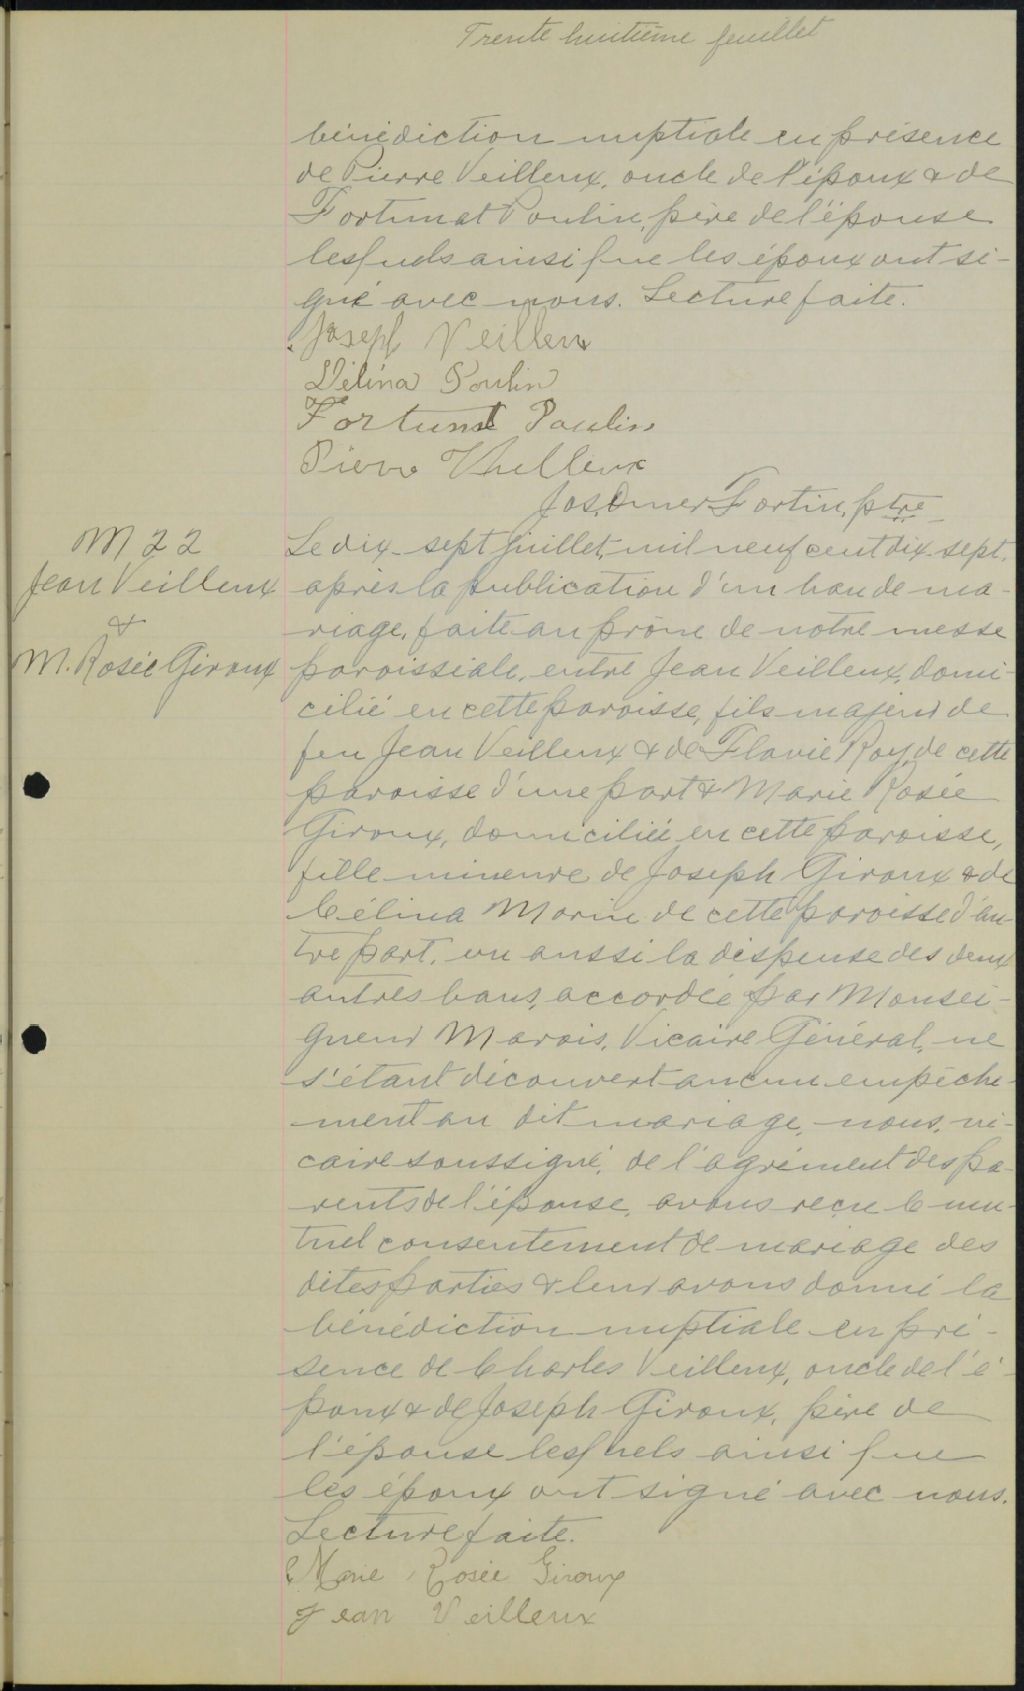 Trente huitième feuillet
bénédiction nuptiale en présence
de Pierre Veilleux, oncle de l'époux & de
Fortunat Poulin, père de l'épouse
lesquels ainsi que les époux ont si-
gné avec nous. Lecture faite.
Joseph Veilleux
Délina Poulin
Fortunat Poulin
Pierre Vheilleux
Jos. Omer Fortin, ptre
M 22
Jean Veilleux
&
M. Rosée Giroux
Le dix-sept juillet, mil neuf cent dix-sept,
après la publication d'un ban de ma-
riage, faite au prône de notre messe
paroissiale, entre Jean Veilleux, domi-
cilié en cette paroisse, fils majeur de
feu Jean Veilleux & de Flavie Roy, de cette
paroisse d'une part & Marie Rosée
Giroux, domiciliée en cette paroisse,
fille mineure de Joseph Giroux & de
Célina Morin de cette paroisse d'au-
tre part, vu aussi la dispense des deux
autres bans, accordée par Monsei-
gneur Marois, Vicaire Général, ne
s'étant découvert aucun empêche-
ment au dit mariage, nous, vi-
caire soussigné, de l'agrément des pa-
rents de l'épouse, avons reçu le mu-
tuel consentement de mariage des
dites parties & leur avons donné la
bénédiction nuptiale en pré-
sence de Charles Veilleux, oncle de l'é-
poux & de Joseph Giroux, père de
l'épouse lesquels ainsi que
les époux ont signé avec nous.
Lecture faite.
Marie Rosée Giroux
Jean Veilleux